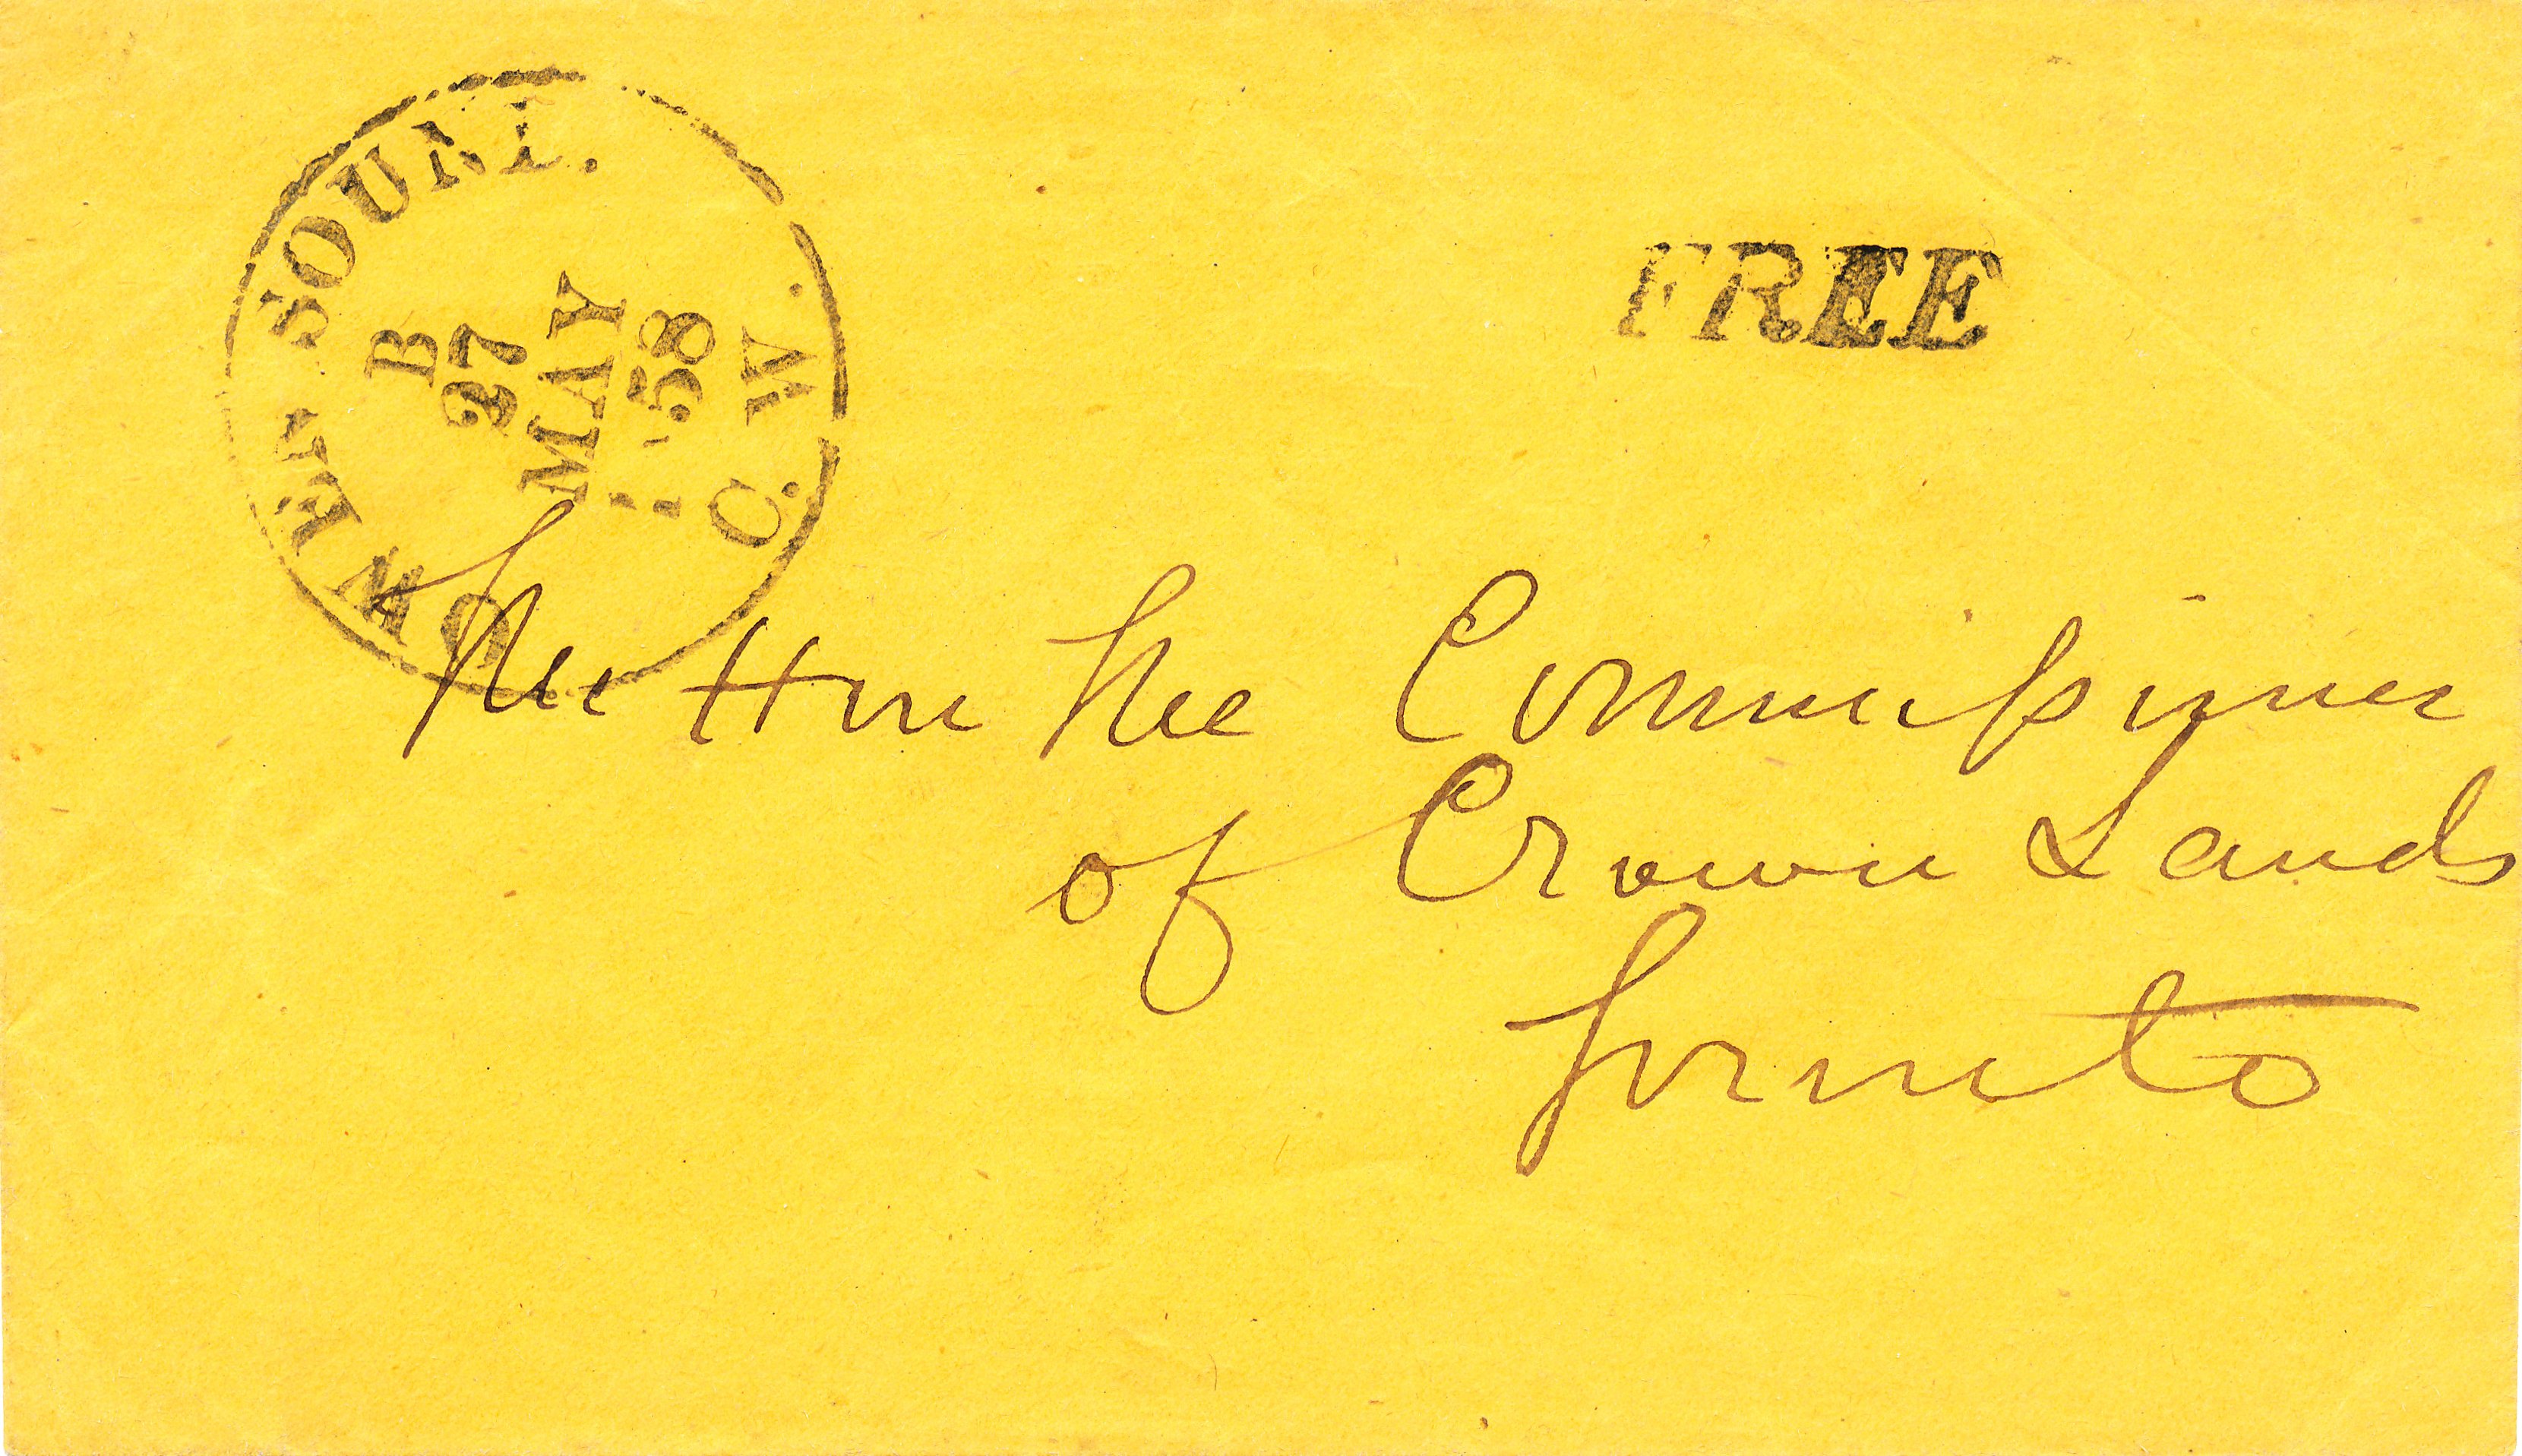 OWEN SOUND.
B
27
MAY
1858
C. W.
FREE
The Hon the Commissioner
of Crown Lands
Toronto